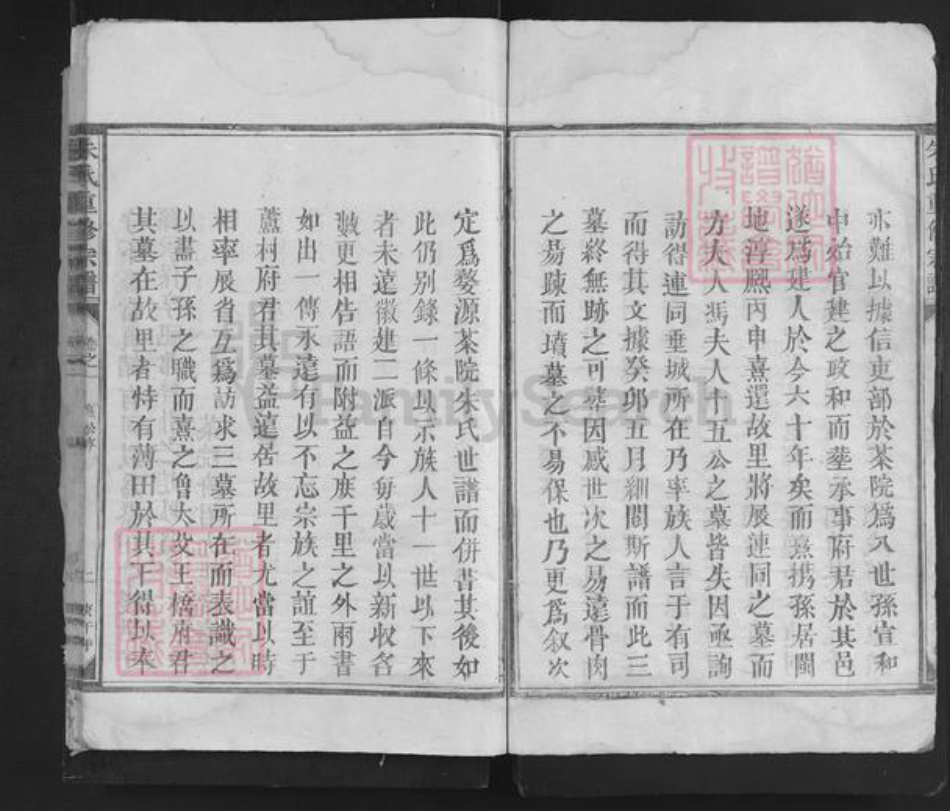 亦難以據信吏部於茶院為八世孫宣和
中始官建之政和而塟承事府君於其邑
遂爲建人於今六十年矣而熹携孫居閩
地淳熈丙申熹還故里將展連同之墓而
方夫人馮夫人十五公之墓皆失因亟詢
訪得連同重城所在乃率族人言于有司
而得其文據癸卯五月細閱斯譜而此三
墓終無跡之可尋因感世次之易遠骨肉
之易踈而墳墓之不易保也乃更爲叙次
定爲婺源茶院朱氏世譜而併書其後如
此仍别錄一條以示族人十一世以下來
者未遠徽建二派自今每歲當以新收名
數更相告語而附益之庶千里之外兩書
如出一傳永遠有以不忘宗族之誼至于
蘆村府君其墓益遠居故里者尤當以時
相率展省互爲訪求三墓所在而表識之
以盡子孫之職而熹之魯大父王橋府君
其墓在故里者特有薄田於其下得以奉
朱氏重修宗譜
FamilySearch